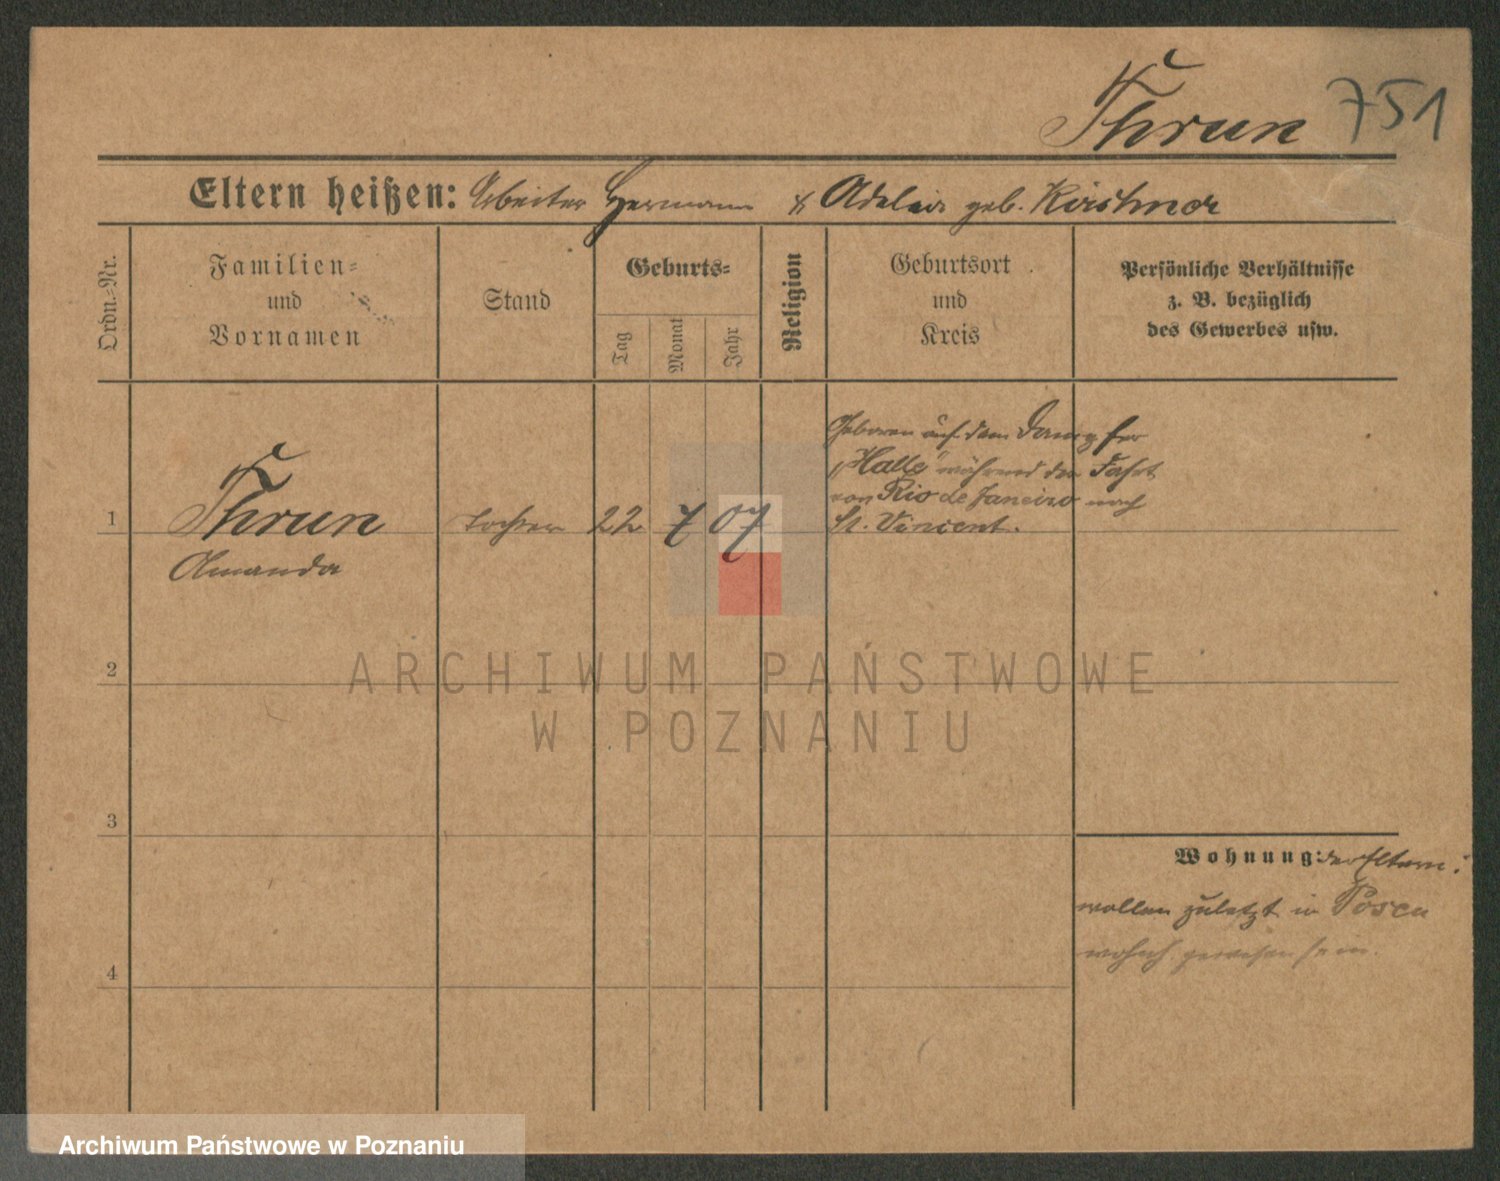 Thrun 751
Eltern heißen: Arbeiter Hermann & Adelair geb. Kirschner
Ordn.-Nr.
Familien-
und
Vornamen
Stand
Geburts-
Tag
Monat
Jahr
Religion
Geburtsort
und
Kreis
Persönliche Verhältnisse
z. B. bezüglich
des Gewerbes usw.
Geboren auf dem Dampfer
„Halle" während der Fahrt
von Rio de Janeiro nach
St. Vincent.
1 Thrun Tochter 22 7 07
Amanda
2
ARCHIWUM PAŃSTWOWE
W POZNANIU
3
Wohnung: der Eltern:
wollen zuletzt in Posen
wohnh. gewesen sein.
4
Archiwum Państwowe w Poznaniu